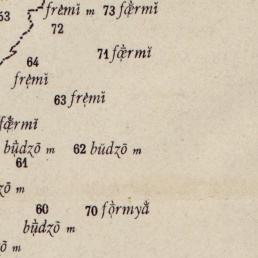 53 frèmĭ m 73 fæ̀rmĭ
72
71 fæ̀rmĭ
64
fre̩mĭ
63 fre̩mĭ
fæ̀rmĭ
bǜdzō m 62 büdzō m
61
zō m
60 70 fǫ̀rmyå̆
bǜdzō m
ō m